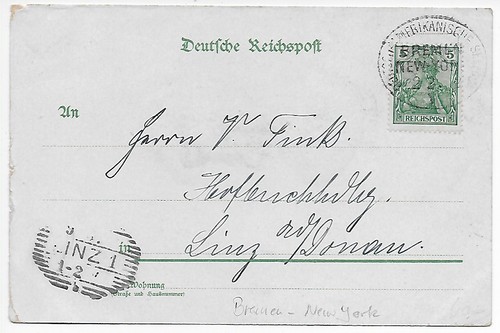 Deutsche Reichspost
AMERIKANISCHE
BREMEN
NEW-YORK
5 5
REICHSPOST
An
Herrn V. Fink.
Hofbuchhdlg.
in Linz a/d Donau.
LINZ 1
Wohnung
(Straße und Hausnummer)
Bremen - New York